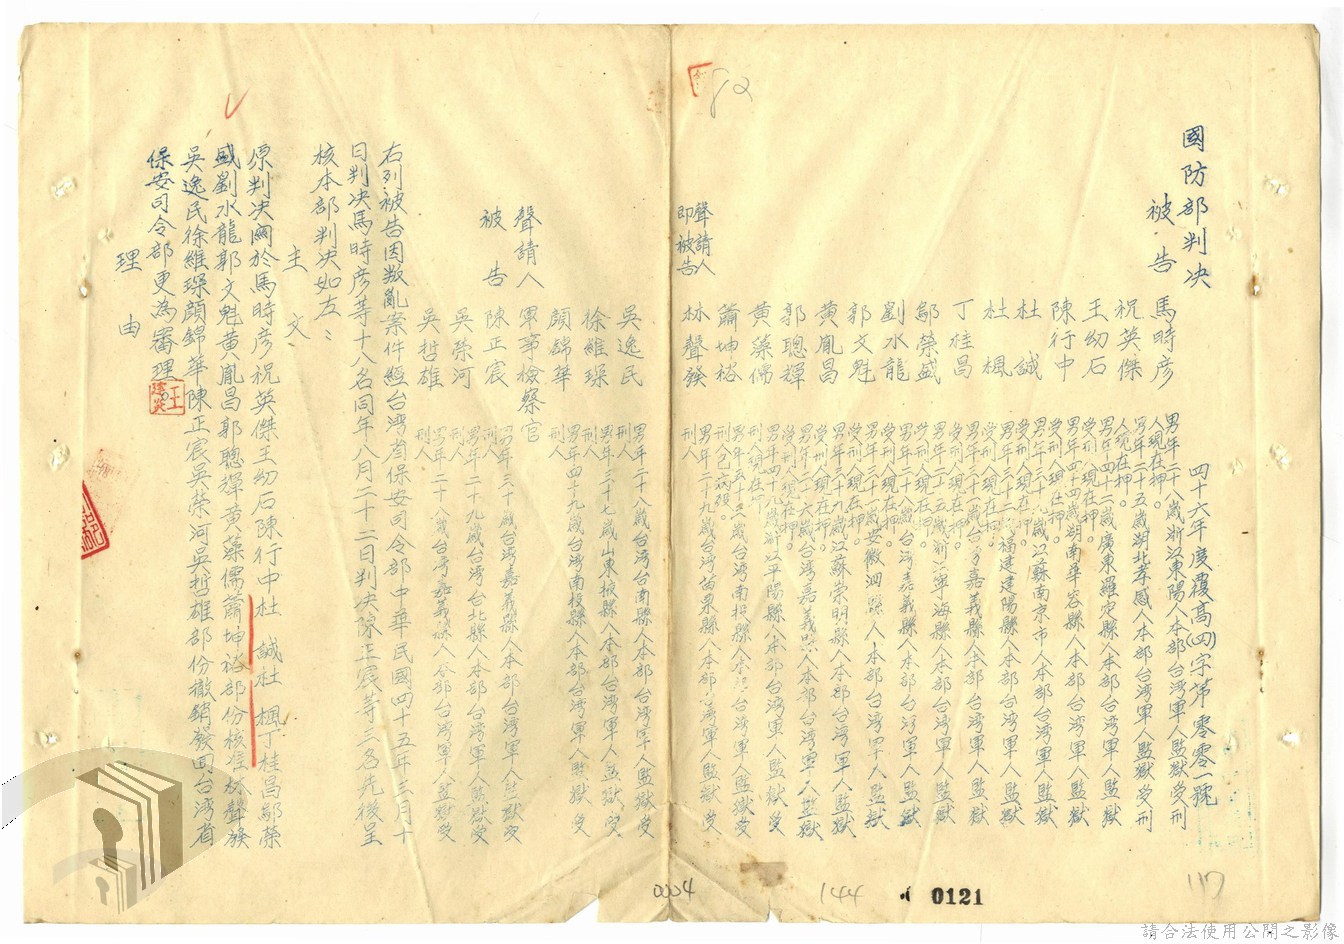 國防部判決
四十六年度覆高(四)字第零零一號
被告
馬時彥 男年二十八歲浙江東陽人本部台灣軍人監獄受刑人現在押。
祝英傑 男年二十五歲湖北孝感人本部台灣軍人監獄受刑人現在押。
王幼石 男年四十二歲廣東羅定縣人本部台灣軍人監獄受刑人現在押。
陳行中 男年四十四歲湖南華容縣人本部台灣軍人監獄受刑人現在押。
杜誠 男年三十九歲江蘇南京市人本部台灣軍人監獄受刑人現在押。
杜楓 男年二十二歲福建建陽縣人本部台灣軍人監獄受刑人現在押。
丁桂昌 男年三十一歲台灣嘉義縣人本部台灣軍人監獄受刑人現在押。
鄔榮盛 男年二十五歲浙江寧海縣人本部台灣軍人監獄受刑人現在押。
劉水龍 男年二十八歲台灣嘉義縣人本部台灣軍人監獄受刑人現在押。
郭文魁 男年三十歲安徽泗縣人本部台灣軍人監獄受刑人現在押。
黃胤昌 男年二十九歲江蘇崇明縣人本部台灣軍人監獄受刑人現在押。
郭聰輝 男年二十六歲台灣嘉義縣人本部台灣軍人監獄受刑人現在押。
黃藻儒 男年四十九歲浙江平陽縣人本部台灣軍人監獄受刑人現在押
蕭坤裕 男年三十歲台灣南投縣人本部台灣軍人監獄受刑人已病歿。
聲請人即被告
林聲發 男年二十九歲台灣苗栗縣人本部台灣軍人監獄受刑人
吳逸民 男年二十八歲台灣台南縣人本部台灣軍人監獄受刑人
徐維琛 男年三十七歲山東掖縣人本部台灣軍人監獄受刑人
顏錦華 男年四十九歲台灣南投縣人本部台灣軍人監獄受刑人
聲請人 軍事檢察官
被告
陳正宸 男年三十歲台灣嘉義縣人本部台灣軍人監獄受刑人
吳榮河 男年二十九歲台灣台北縣人本部台灣軍人監獄受刑人
吳哲雄 男年二十八歲台灣嘉義縣人本部台灣軍人監獄受刑人
右列被告因叛亂案件經台湾省保安司令部中華民國四十五年三月十
日判决馬時彥等十八名同年八月二十二日判决陳正宸等三名先後呈
核本部判决如左：
主文
原判决関於馬時彥祝英傑王幼石陳行中杜誠杜楓丁桂昌鄔榮
盛劉水龍郭文魁黃胤昌郭聰輝黃藻儒蕭坤裕部份核准林聲發
吳逸民徐維琛顏錦華陳正宸吳榮河吳哲雄部份撤銷發回台湾省
保安司令部更為審理。
理由
82
0004
144
0121
117
請合法使用公開之影像